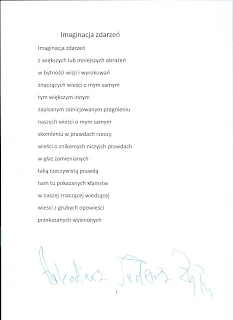 Imaginacja zdarzeń
Imaginacja zdarzeń
z większych lub mniejszych obrażeń
w bytności wizji i wyrokowań
znaczących wieści o mym samym
tym większym innym
zapisanym zainicjowanym pragnieniu
naszych wieści o mym samym
skomleniu w prawdach rzeczy
wieści o znikomych niczyich prawdach
w głaz zamienianych
taką rzeczywistą prawdą
nam tu pokazanych kłamstw
w naszej znaczącej wiedzącej
wieści z grubych opowieści
przekazanych wyśnionych
1